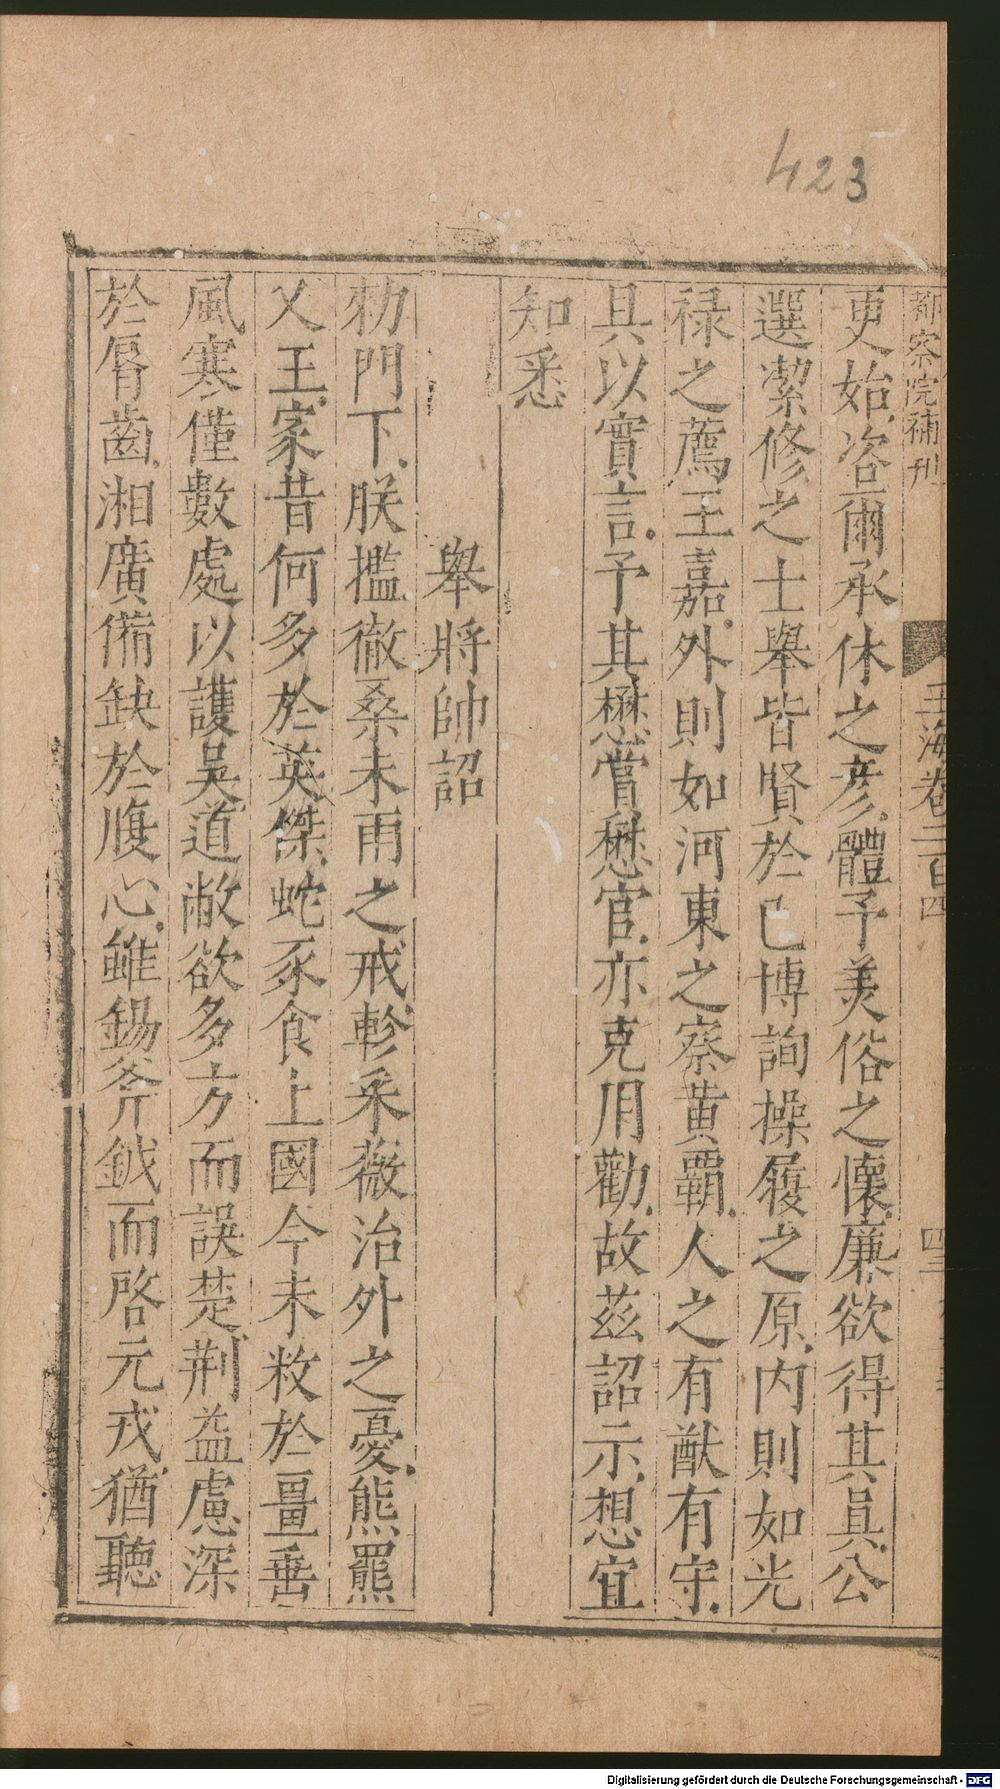 423
都察院補刊
玉海卷二百四
更始咨爾承休之彦體予美俗之懷廉欲得其真公
選潔修之士舉皆賢於己博詢操履之原内則如光
禄之薦王嘉外則如河東之察黄覇人之有猷有守
具以實言予其懋賞懋官亦克用勸故茲詔示想宜
知悉
舉將帥詔
勑門下朕㩜徹桑未雨之戒軫采薇治外之憂熊羆
乂王家昔何多於英傑蛇豕食上國今未救於畺垂
風寒僅數處以護吳道敝欲多方而誤楚荆益慮深
於脣齒湘廣備缺於腹心雖錫斧鉞而啓元戎猶聽
Digitalisierung gefördert durch die Deutsche Forschungsgemeinschaft - DFG